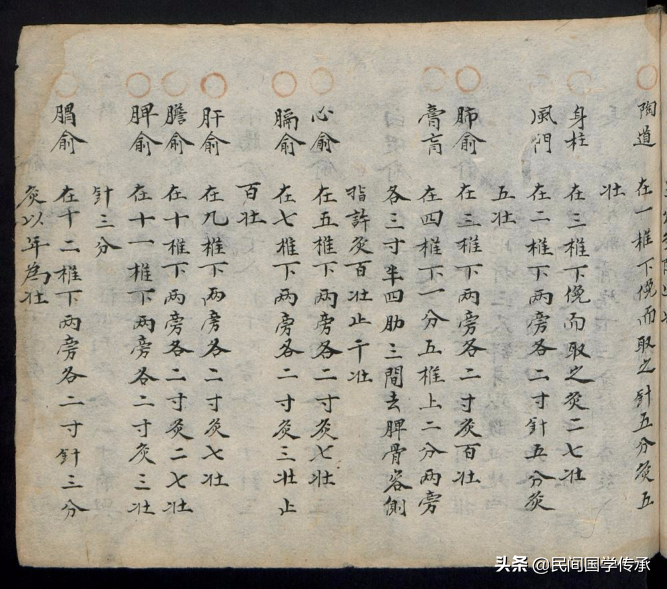 陶道　在一椎下俛而取之针五分灸五
壮
身柱　在三椎下俛而取之灸二七壮
風門　在二椎下两旁各二寸针五分灸
五壮
肺俞　在三椎下两旁各二寸灸百壮
膏肓　在四椎下一分五椎上二分两旁
各三寸半四肋三間去脾骨容侧
指許灸百壮止千壮
心俞　在五椎下两旁各二寸灸七壮
膈俞　在七椎下两旁各二寸灸三壮止
百壮
肝俞　在九椎下两旁各二寸灸七壮
膽俞　在十椎下两旁各二寸灸二七壮
脾俞　在十一椎下两旁各二寸灸三壮
针三分
胃俞　在十二椎下两旁各二寸针三分
灸以年為壮
头条 @民间国学传承